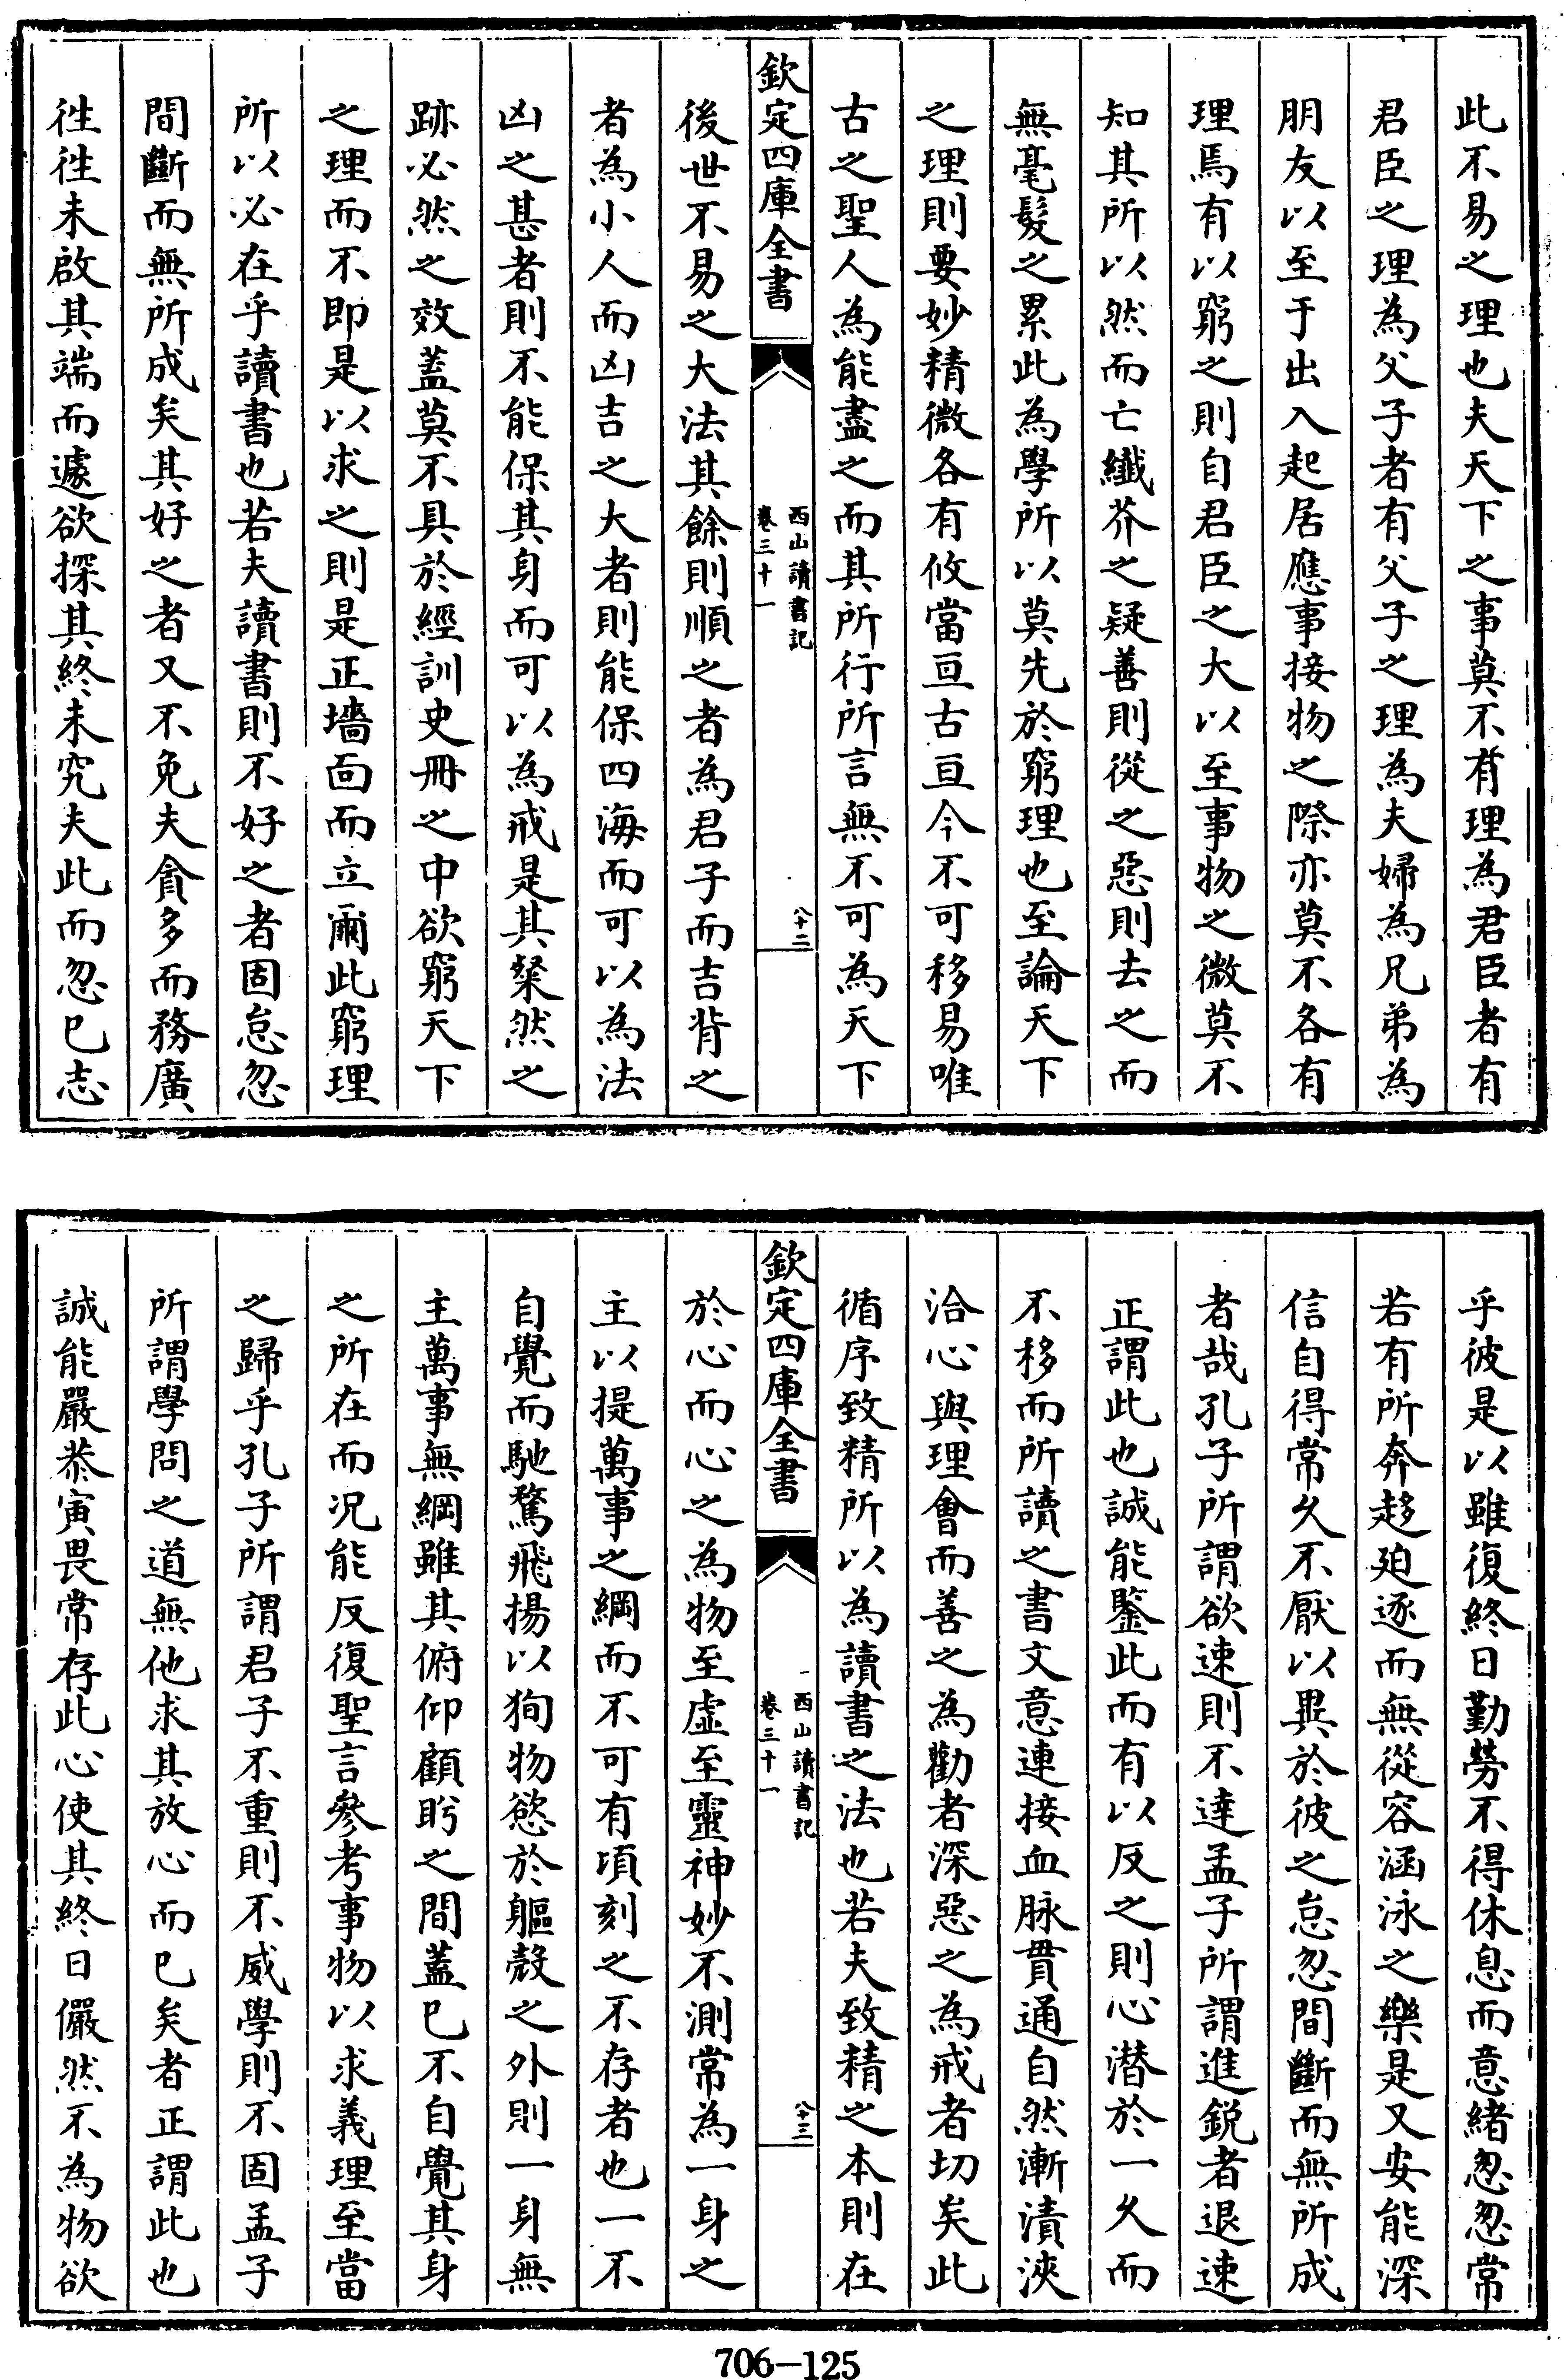 此不易之理也夫天下之事莫不有理為君臣者有
君臣之理為父子者有父子之理為夫婦為兄弟為
朋友以至于出入起居應事接物之際亦莫不各有
理焉有以窮之則自君臣之大以至事物之微莫不
知其所以然而亡纖芥之疑善則從之惡則去之而
無毫髮之累此為學所以莫先於窮理也至論天下
之理則要妙精微各有攸當亘古亘今不可移易唯
古之聖人為能盡之而其所行所言無不可為天下
欽定四庫全書
西山讀書記
卷三十一
八十二
後世不易之大法其餘則順之者為君子而吉背之
者為小人而凶吉之大者則能保四海而可以為法
凶之甚者則不能保其身而可以為戒是其粲然之
跡必然之效蓋莫不具於經訓史冊之中欲窮天下
之理而不即是以求之則是正墻面而立爾此窮理
所以必在乎讀書也若夫讀書則不好之者固怠忽
間斷而無所成矣其好之者又不免夫貪多而務廣
徃徃未啟其端而遽欲探其終未究夫此而忽已志
乎彼是以雖復終日勤勞不得休息而意緒怱怱常
若有所奔趍廹逐而無從容涵泳之樂是又安能深
信自得常久不厭以異於彼之怠忽間斷而無所成
者哉孔子所謂欲速則不達孟子所謂進鋭者退速
正謂此也誠能鑒此而有以反之則心潜於一久而
不移而所讀之書文意連接血脉貫通自然漸漬浹
洽心與理會而善之為勸者深惡之為戒者切矣此
循序致精所以為讀書之法也若夫致精之本則在
欽定四庫全書
西山讀書記
卷三十一
八十三
於心而心之為物至虛至靈神妙不測常為一身之
主以提萬事之綱而不可有頃刻之不存者也一不
自覺而馳騖飛揚以狥物慾於軀殼之外則一身無
主萬事無綱雖其俯仰顧盻之間蓋已不自覺其身
之所在而况能反復聖言參考事物以求義理至當
之歸乎孔子所謂君子不重則不威學則不固孟子
所謂學問之道無他求其放心而已矣者正謂此也
誠能嚴恭寅畏常存此心使其終日儼然不為物欲
706-125